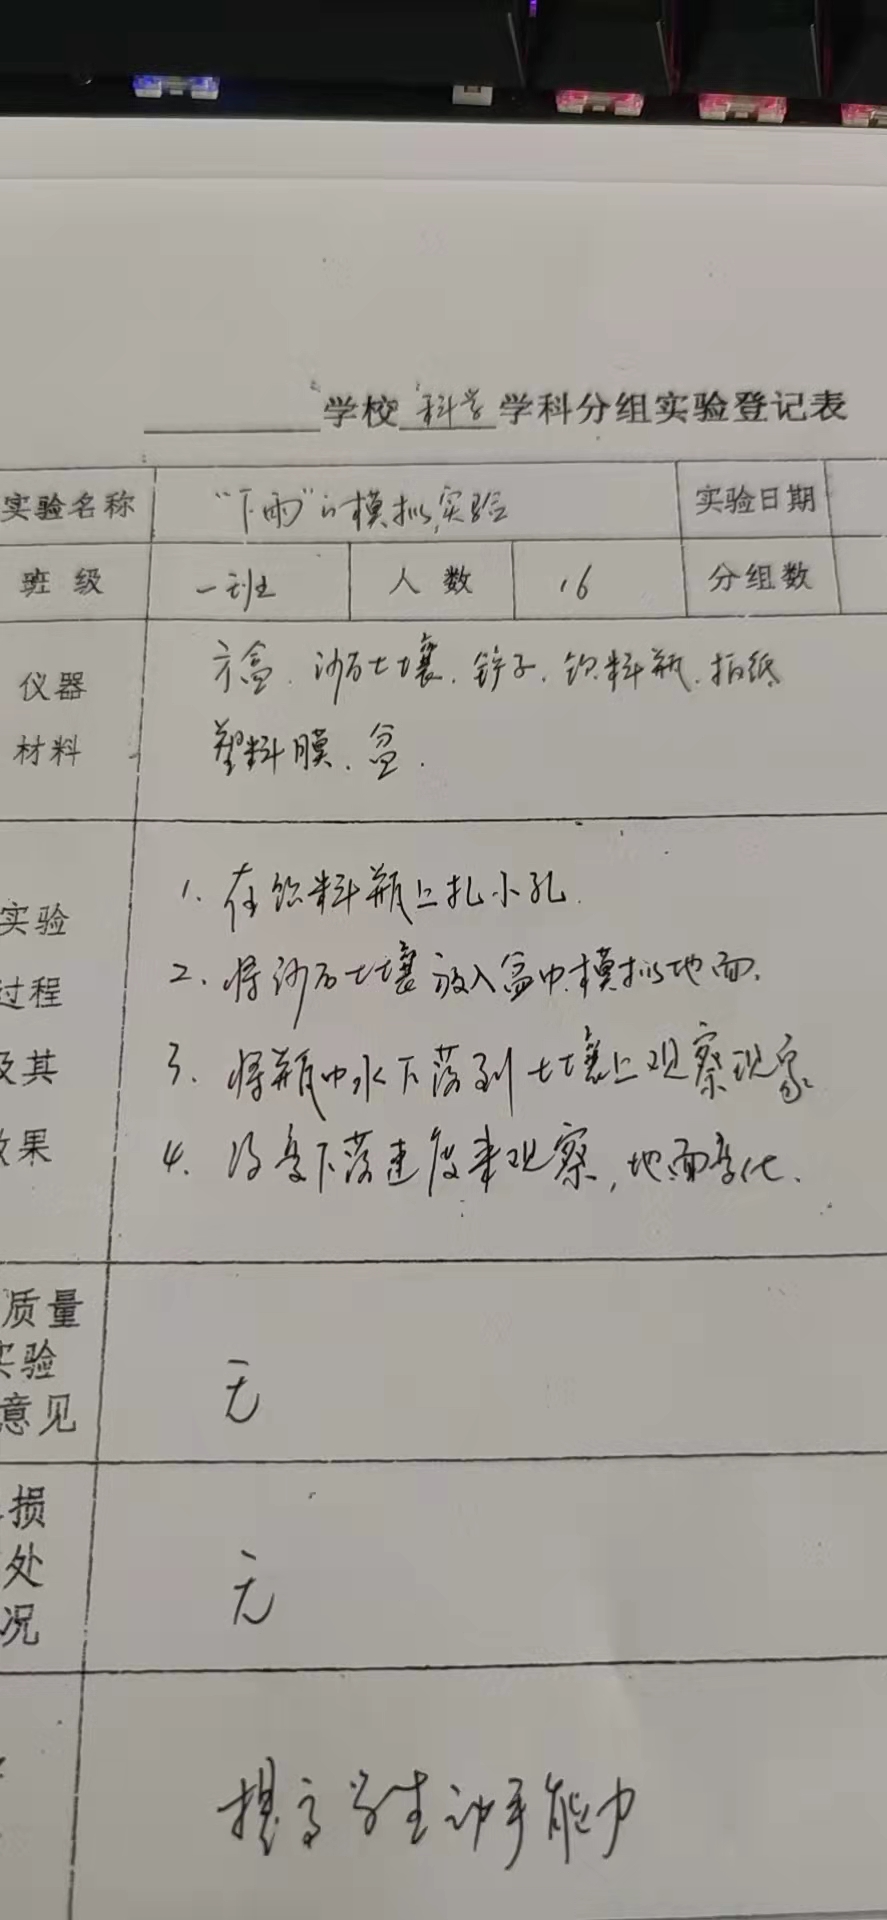 学校 科学 学科分组实验登记表
实验名称 "下雨"的模拟实验 实验日期
班级 一班 人数 16 分组数
仪器 方盒、沙石土壤、铲子、饮料瓶、报纸
材料 塑料膜、盆.
1、在饮料瓶上扎小孔.
实验
2、将沙石土壤放入盆中模拟地面.
过程
及其 3、将瓶中水下落到土壤上观察现象
效果 4、改变下落速度来观察,地面变化.
质量
实验
意见 无
损
处 无
况
提高学生动手能力